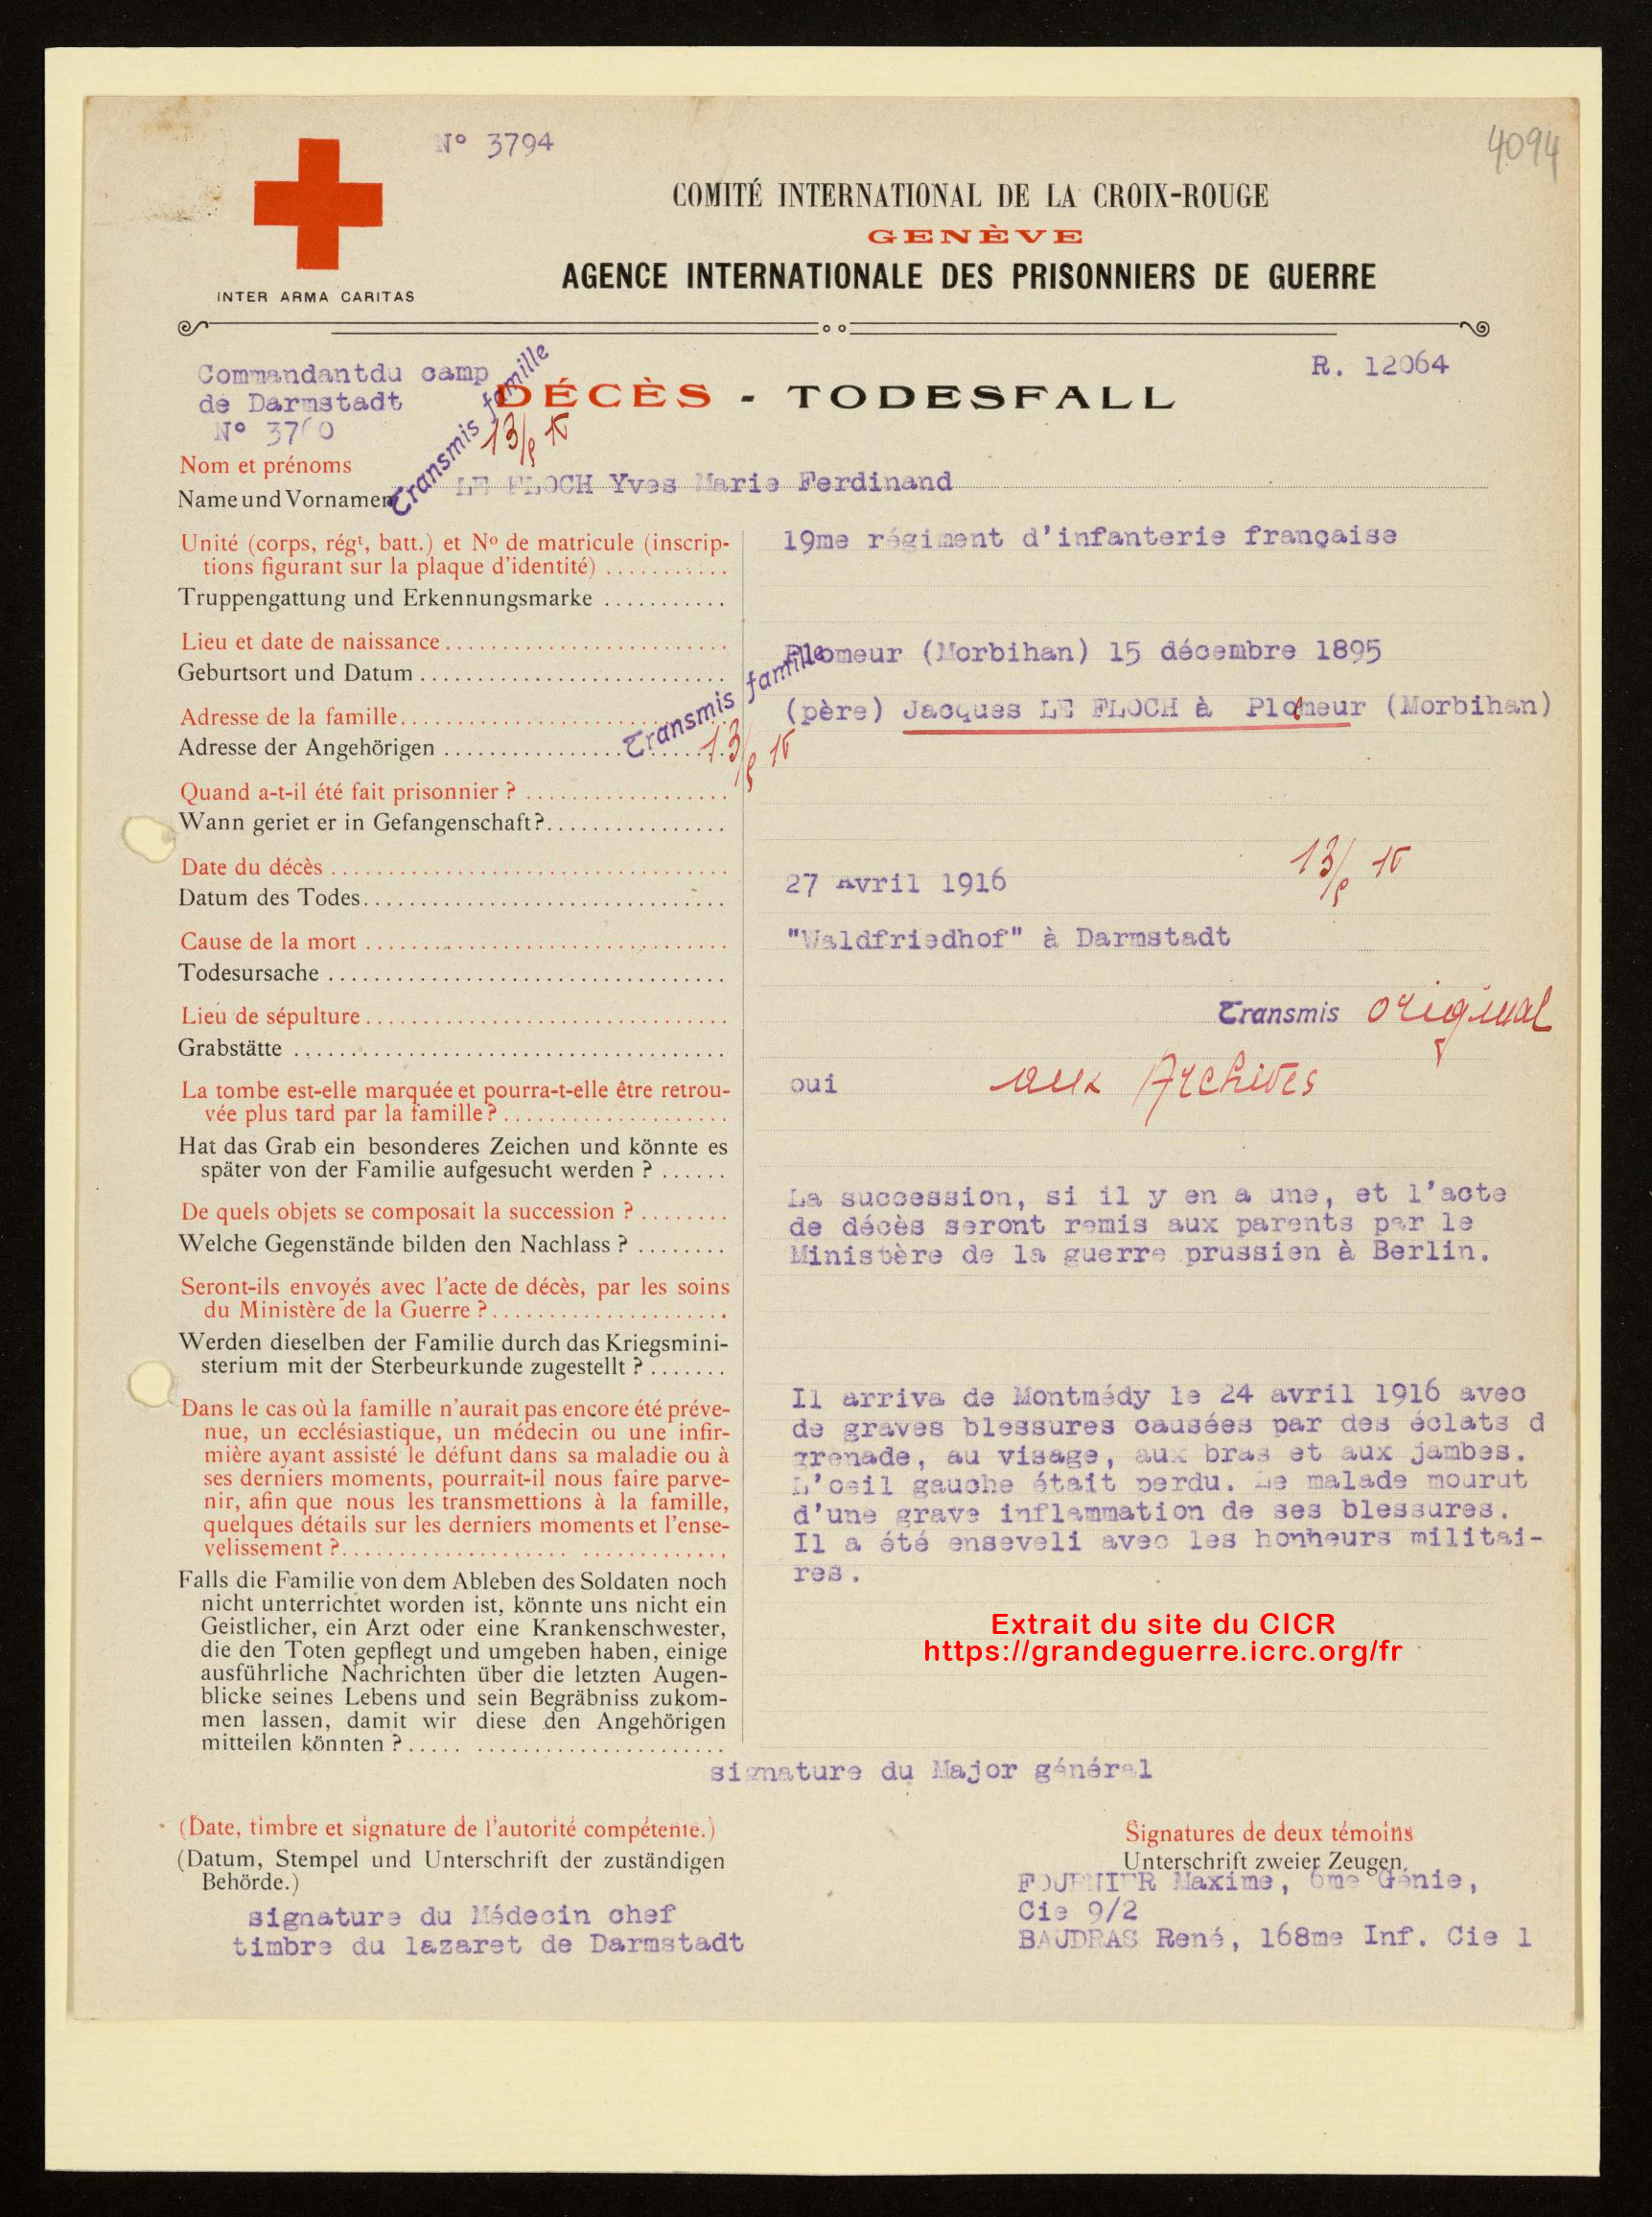 N° 3794
4094
COMITÉ INTERNATIONAL DE LA CROIX-ROUGE
GENÈVE
AGENCE INTERNATIONALE DES PRISONNIERS DE GUERRE
INTER ARMA CARITAS
R. 12064
Commandantdu camp
de Darmstadt
Transmis famille
DÉCÈS - TODESFALL
Nom et prénoms
Name und Vornamen
LE FLOCH Yves Marie Ferdinand
Unité (corps, régᵗ, batt.) et Nº de matricule (inscrip-
tions figurant sur la plaque d'identité)
Truppengattung und Erkennungsmarke
19me régiment d'infanterie française
Lieu et date de naissance
Geburtsort und Datum
Plomeur (Morbihan) 15 décembre 1895
Adresse de la famille
Adresse der Angehörigen
Transmis famille
(père) Jacques LE FLOCH à Plomeur (Morbihan)
Quand a-t-il été fait prisonnier ?
Wann geriet er in Gefangenschaft?
Date du décès
Datum des Todes
27 Avril 1916
Cause de la mort
Todesursache
"Waldfriedhof" à Darmstadt
Lieu de sépulture
Grabstätte
Transmis original
aux Archives
La tombe est-elle marquée et pourra-t-elle être retrou-
vée plus tard par la famille?
oui
Hat das Grab ein besonderes Zeichen und könnte es
später von der Familie aufgesucht werden ?
De quels objets se composait la succession ?
Welche Gegenstände bilden den Nachlass ?
La succession, si il y en a une, et l'acte
de décès seront remis aux parents par le
Ministère de la guerre prussien à Berlin.
Seront-ils envoyés avec l'acte de décès, par les soins
du Ministère de la Guerre ?
Werden dieselben der Familie durch das Kriegsmini-
sterium mit der Sterbeurkunde zugestellt ?
Dans le cas où la famille n'aurait pas encore été préve-
nue, un ecclésiastique, un médecin ou une infir-
mière ayant assisté le défunt dans sa maladie ou à
ses derniers moments, pourrait-il nous faire parve-
nir, afin que nous les transmettions à la famille,
quelques détails sur les derniers moments et l'ense-
velissement ?
Il arriva de Montmédy le 24 avril 1916 avec
de graves blessures causées par des éclats d
grenade, au visage, aux bras et aux jambes.
L'oeil gauche était perdu. Le malade mourut
d'une grave inflammation de ses blessures.
Il a été enseveli avec les honneurs militai-
res.
Falls die Familie von dem Ableben des Soldaten noch
nicht unterrichtet worden ist, könnte uns nicht ein
Geistlicher, ein Arzt oder eine Krankenschwester,
die den Toten gepflegt und umgeben haben, einige
ausführliche Nachrichten über die letzten Augen-
blicke seines Lebens und sein Begräbniss zukom-
men lassen, damit wir diese den Angehörigen
mitteilen könnten ?
Extrait du site du CICR
https://grandeguerre.icrc.org/fr
signature du Major général
(Date, timbre et signature de l'autorité compétente.)
(Datum, Stempel und Unterschrift der zuständigen
Behörde.)
signature du Médecin chef
timbre du lazaret de Darmstadt
Signatures de deux témoins
Unterschrift zweier Zeugen
FOURNIER Maxime, 6me Génie,
Cie 9/2
BAUDRAS René, 168me Inf. Cie 1